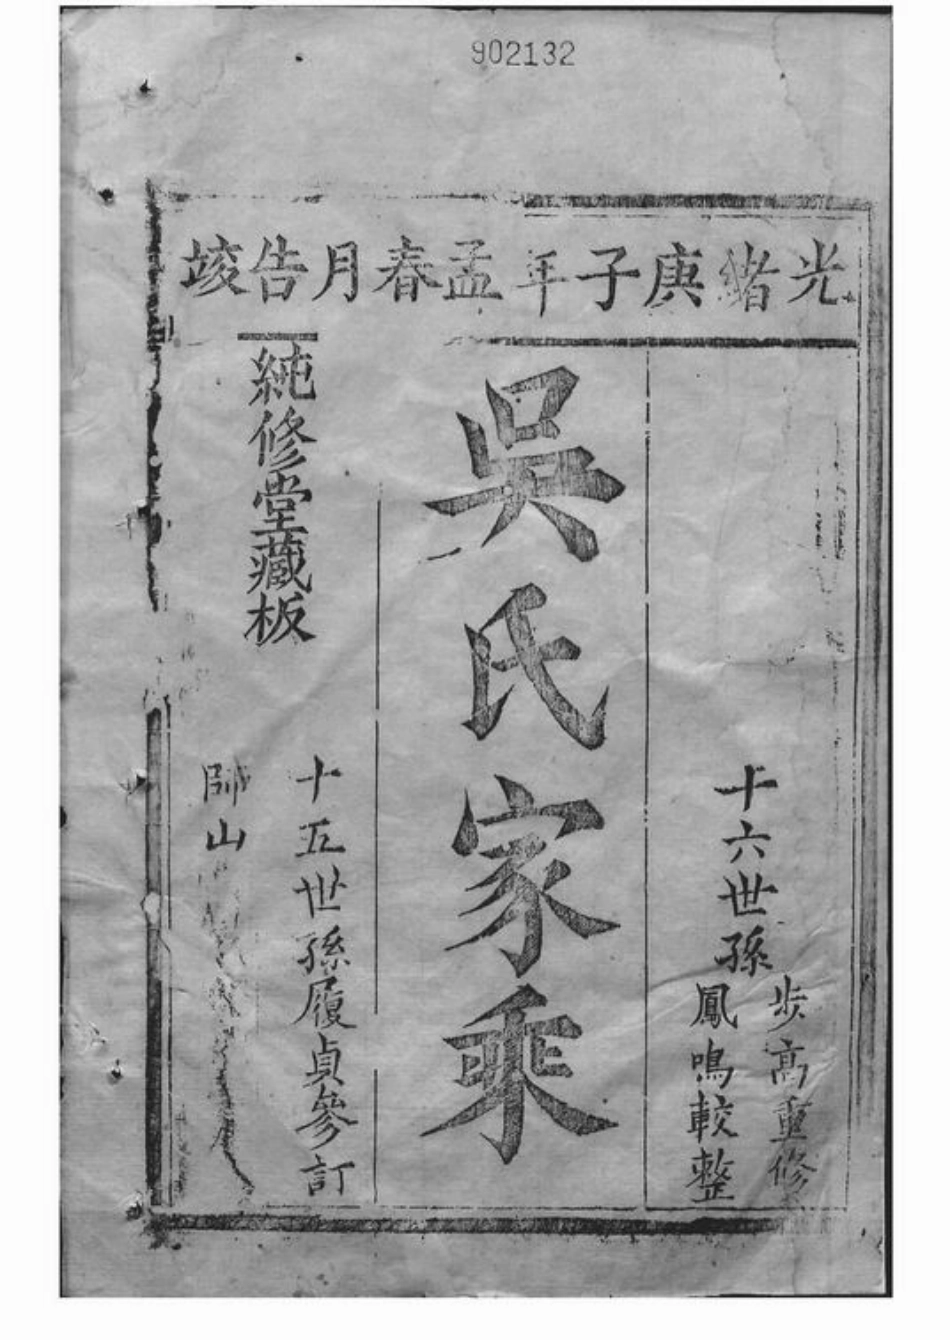 902132
光緒庚子年孟春月告竣
十六世孫
步高重修
鳳鳴較整
吳氏家乘
十五世孫履貞參訂
師山
純修堂藏板